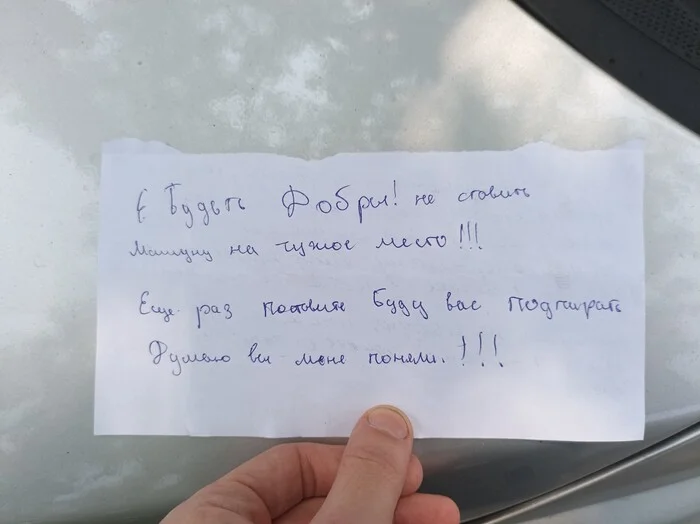 Будьте добры! не ставить
Машину на чужое место!!!
Еще раз поставите буду вас подпирать
Думаю вы меня поняли.!!!